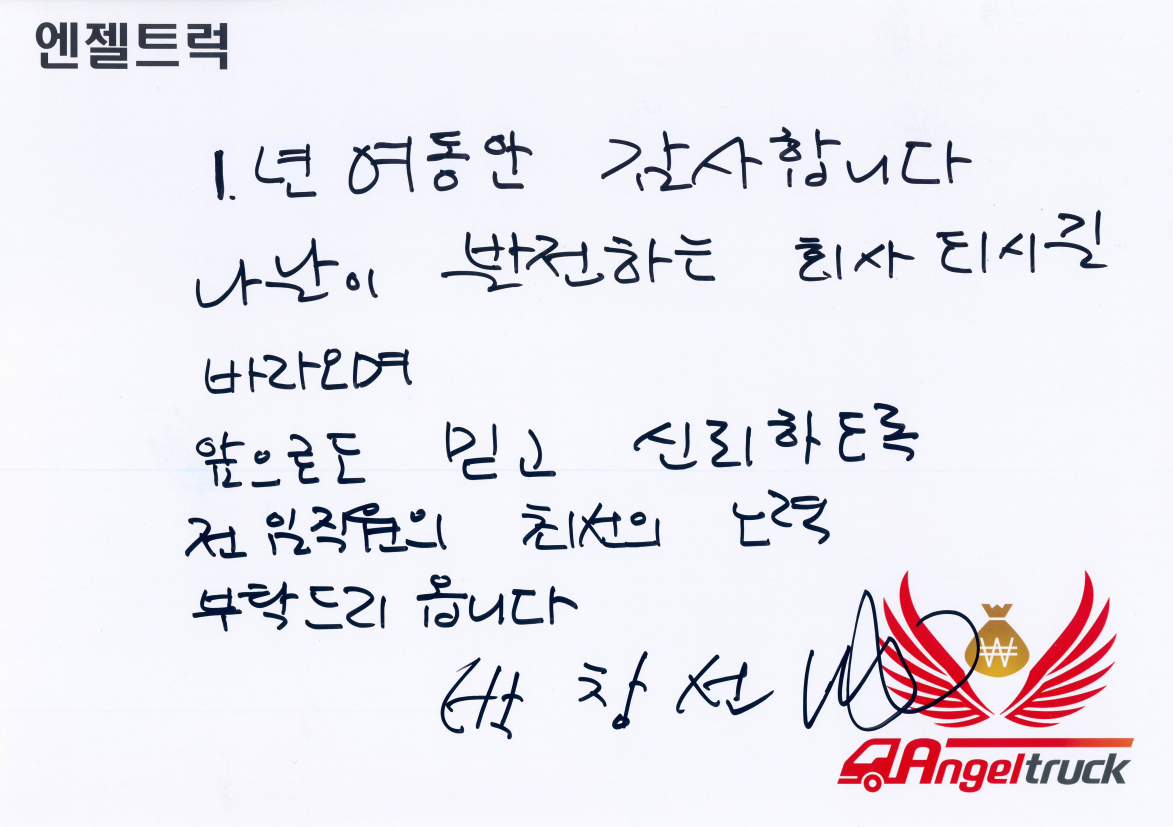 엔젤트럭
1.년 여동안 감사합니다
나날이 발전하는 회사 되시길
바라오며
앞으로도 믿고 신뢰하도록
전 임직원의 최선의 노력
부탁드리옵니다
창선
Angeltruck